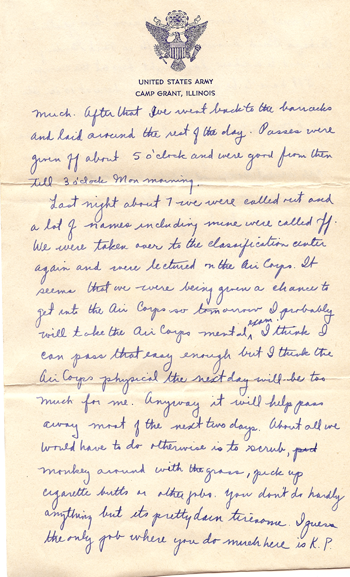 UNITED STATES ARMY
CAMP GRANT, ILLINOIS
much. After that I've went back to the barracks
and laid around the rest of the day. Passes were
given off about 5 o'clock and were good from then
till 3 o'clock Mon morning.
Last night about 7 we were called out and
a lot of names including mine were called off.
We were taken over to the classification center
again and were lectured on the Air Corps. It
seems that we were being given a chance to
get into the Air Corps so tomorrow I probably
will take the Air Corps mental exam. I think I
can pass that easy enough but I think the
Air Corps physical the next day will be too
much for me. Anyway it will help pass
away most of the next two days. About all we
would have to do otherwise is to scrub,
monkey around with the grass, pick up
cigarette butts or other jobs. You don't do hardly
anything but its pretty darn tiresome. I guess
the only job where you do much here is K.P.